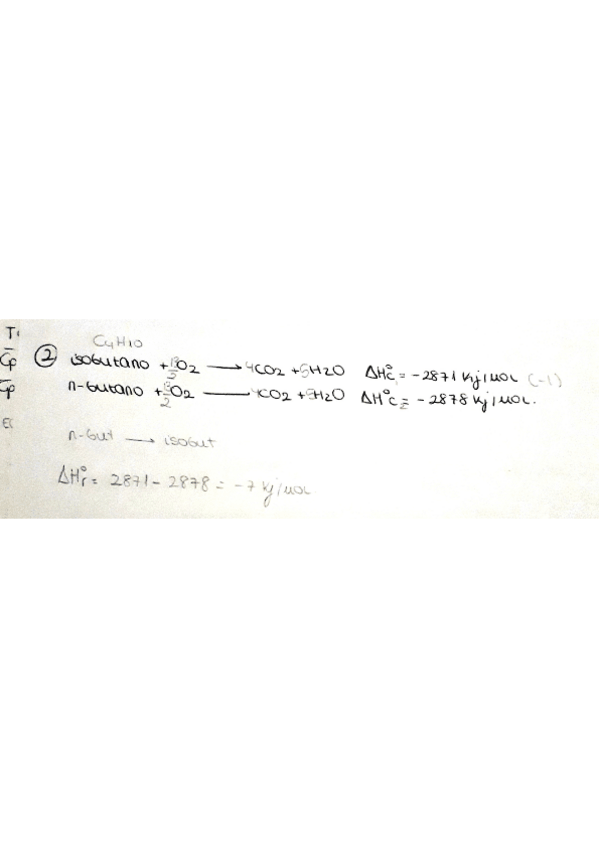 C4H10
② isobutano + 13/2 O2 → 4CO2 + 5H2O ΔH°c1 = -2871 kj/mol (-1)
n-butano + 13/2 O2 → 4CO2 + 5H2O ΔH°c2 = -2878 kj/mol.
n-but → isobut
ΔH°r = 2871 - 2878 = -7 kj/mol
Cp
Cp